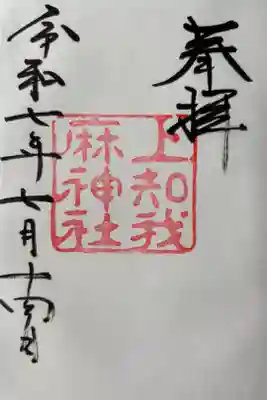 奉拝
上知我
麻神社
令和七年七月十四日